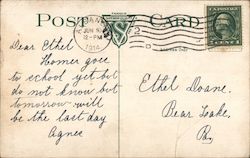 POST CARD
JUN
12-PM
1914
2
D
Dear Ethel
Homer goes
to school yet but
do not know but
tomorrow will
be the last day
Agnes
Ethel Doane,
Bear Lake,
Pa.